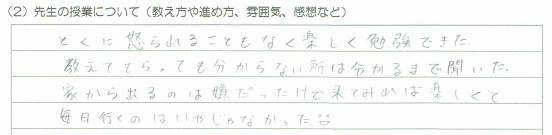 (2) 先生の授業について（教え方や進め方、雰囲気、感想など）
とくに怒られることもなく楽しく勉強できた.
教えてもらっても分からない所は分かるまで聞いた.
家から出るのは嫌だったけど来てみれば楽しくて
毎日行くのはいやじゃなかった